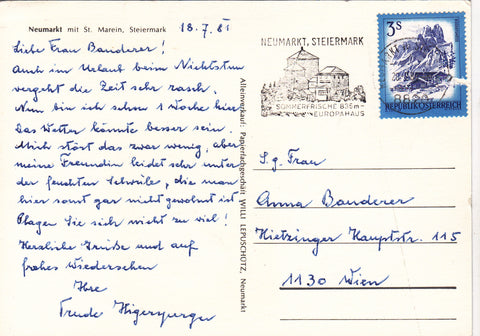 Neumarkt mit St. Marein, Steiermark
18.7.81
Liebe Frau Banderer!
Auch im Urlaub beim Nichtstun
vergeht die Zeit sehr rasch.
Nun bin ich schon 1 Woche hier.
Das Wetter könnte besser sein.
Mich stört das zwar wenig, aber
meine Freundin leidet sehr unter
der feuchten Schwüle, die man
hier sonst gar nicht gewohnt ist.
Plagen Sie sich nicht zu viel!
Herzliche Grüße und auf
frohes Wiedersehen
Ihre
Trude
Alleinverlauf: Papierfachgeschäft WILLI LEPUSCHÜTZ, Neumarkt
NEUMARKT, STEIERMARK
SOMMERFRISCHE 835m-
EUROPAHAUS
3S
REPUBLIK ÖSTERREICH
S.g. Frau
Anna Banderer
Hietzinger Hauptstr. 115
1130 Wien